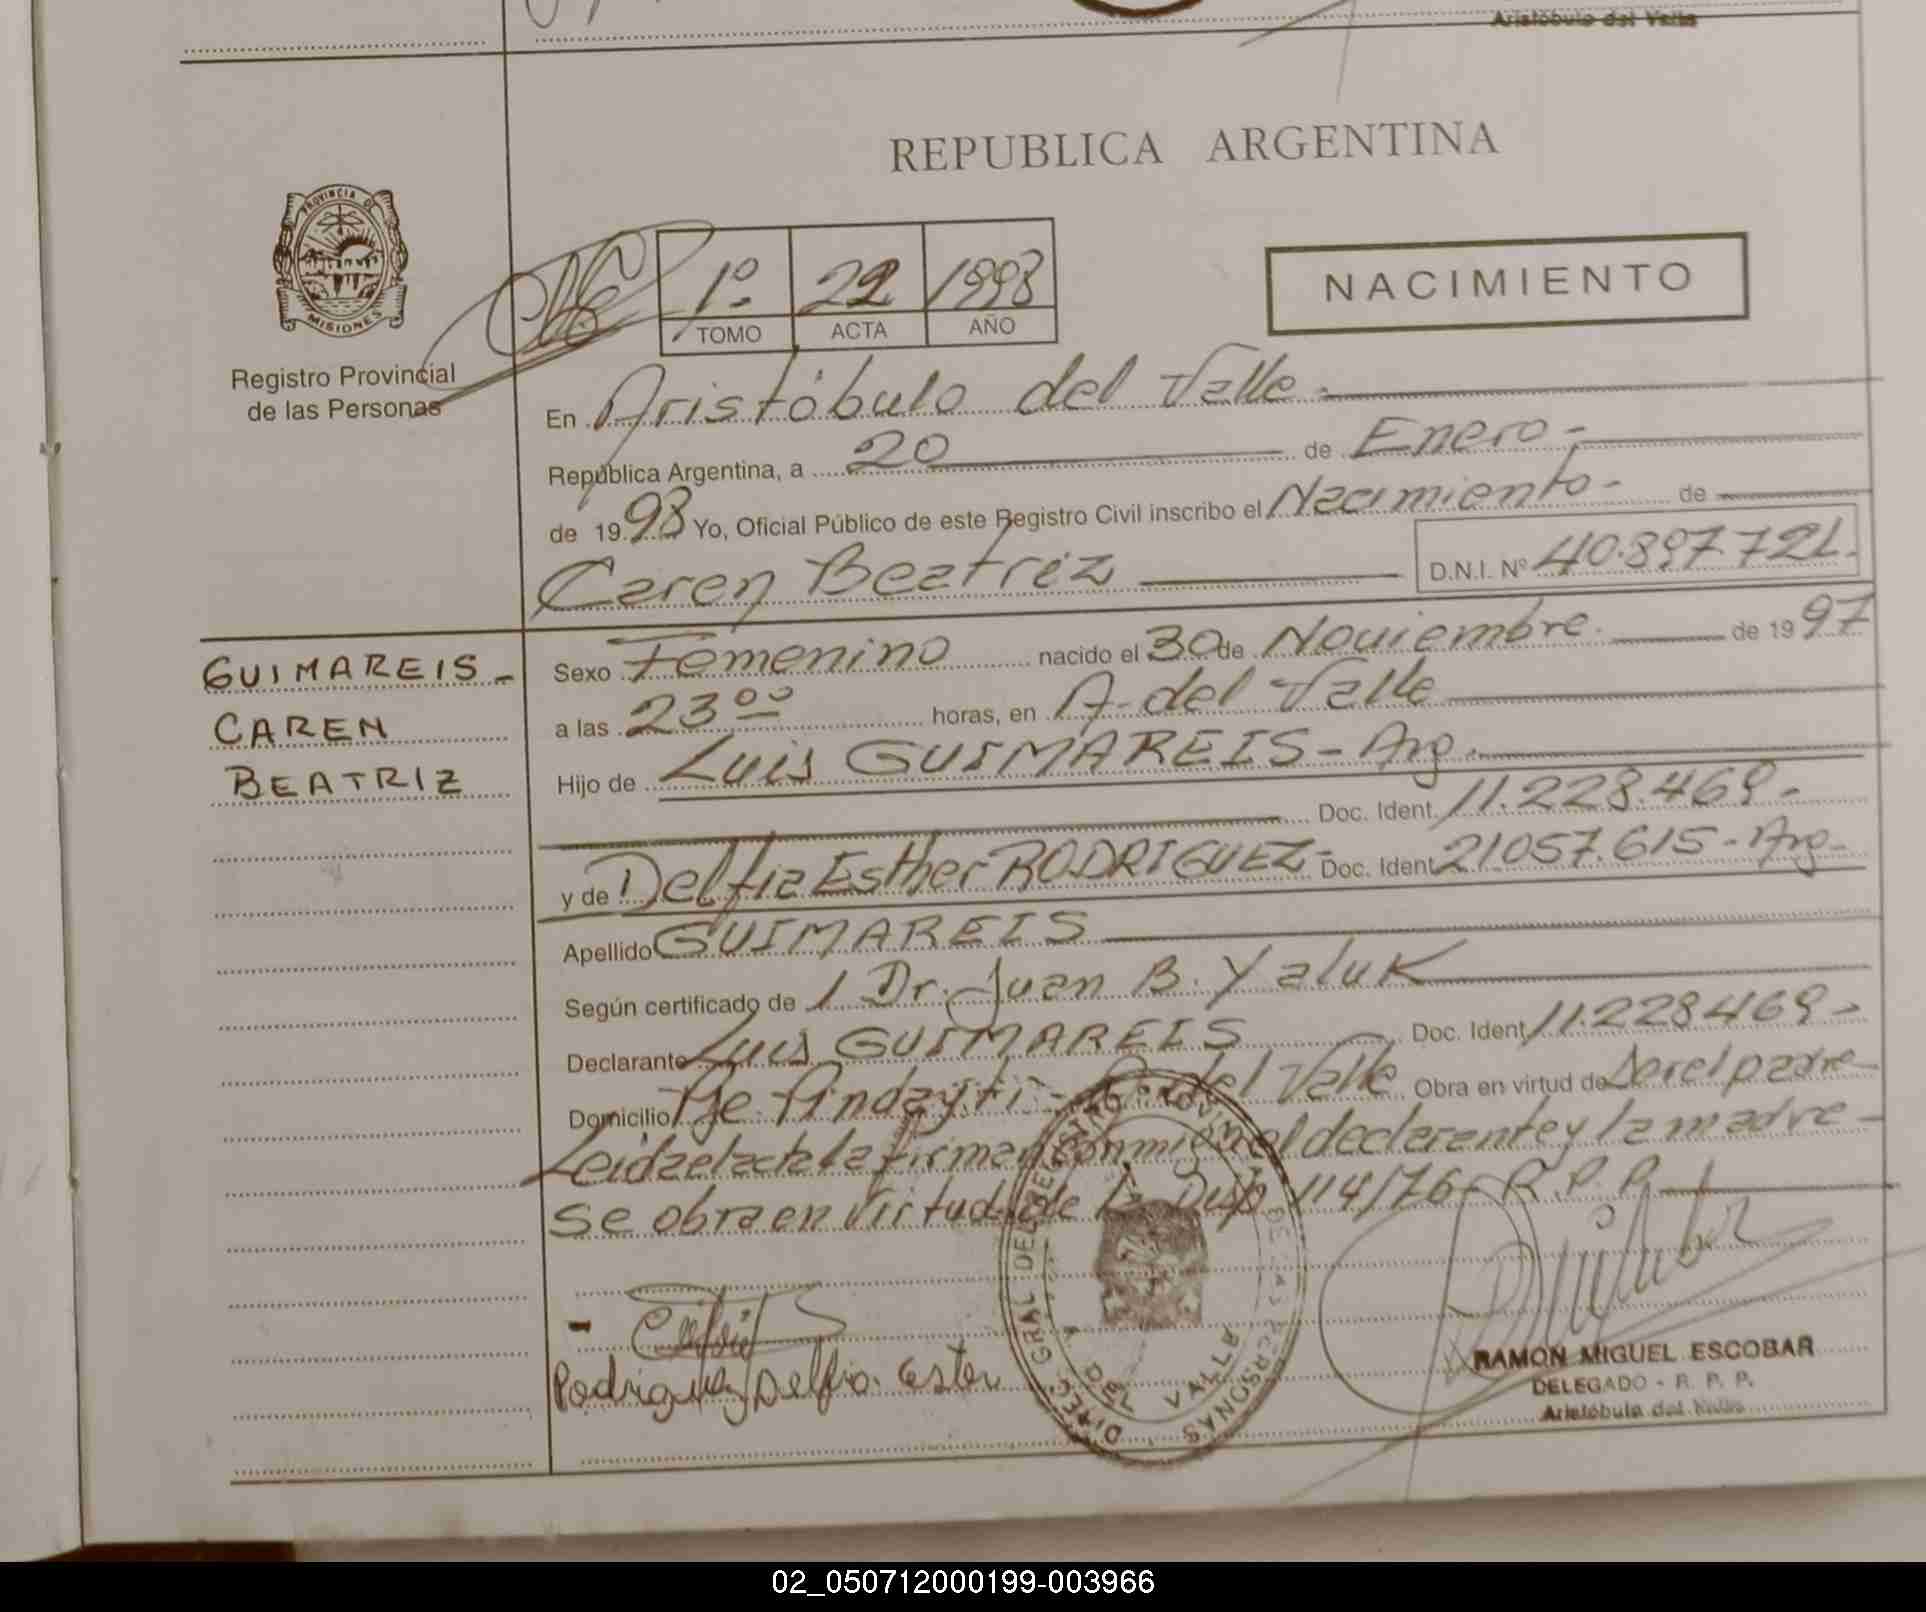 Aristóbulo del Valle
REPUBLICA ARGENTINA
PROVINCIA DE
MISIONES
Registro Provincial
de las Personas
1º 22 1998
TOMO ACTA AÑO
NACIMIENTO
En Aristóbulo del Valle.-
República Argentina, a 20 de Enero-
de 1998 Yo, Oficial Público de este Registro Civil inscribo el Nacimiento- de
Caren Beatriz D.N.I. Nº 40.897.721.
GUIMAREIS-
CAREN
BEATRIZ
Sexo Femenino nacido el 30 de Noviembre. de 1997
a las 23 ºº horas, en A. del Valle
Hijo de Luis GUIMAREIS - Arg.
Doc. Ident. 11.228.469-
y de Delfia Esther RODRIGUEZ- Doc. Ident 21057.615- Arg-
Apellido GUIMAREIS
Según certificado de Dr. Juan B. Yaluk
Declarante Luis GUIMAREIS Doc. Ident 11.228469-
Domicilio Pje. Pindayti - A. del Valle Obra en virtud de Ser el padre-
Leida el acta la firman conmigo el declarante y la madre-
se obra en virtud de la Disp. 114/76- R.P.P.
Rodriguez Delfia Ester
DIREC. GRAL DEL REGISTRO PROVINCIAL DE LAS PERSONAS
DEL VALLE
RAMON MIGUEL ESCOBAR
DELEGADO - R. P. P.
Aristóbulo del Valle
02_050712000199-003966